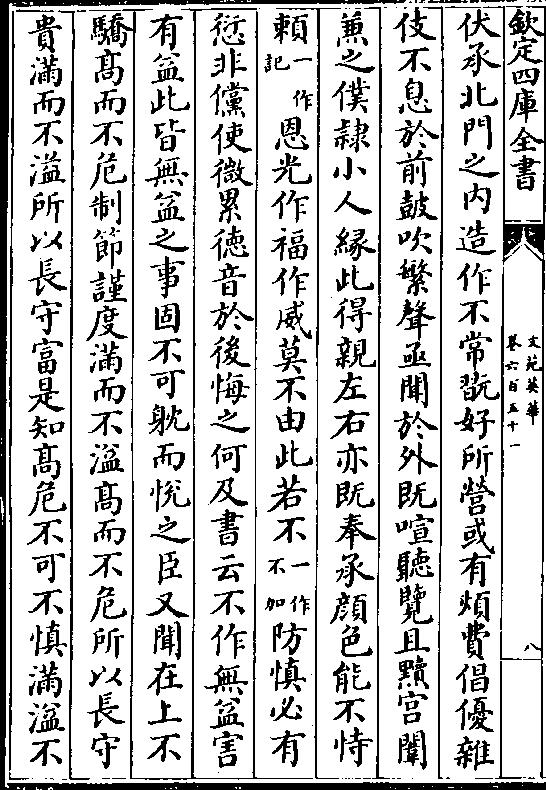 欽定四庫全書
文苑英華
卷六百五十一
八
伏承北門之內造作不常翫好所營或有煩費倡優雜
伎不息於前鼓吹繁聲亟聞於外既喧聽覽且黷宫闈
兼之僕隸小人緣此得親左右亦既奉承顔色能不恃
賴一作記恩光作福作威莫不由此若不一作不加防慎必有
愆非儻使微累徳音於後悔之何及書云不作無益害
有益此皆無益之事固不可躭而悅之臣又聞在上不
驕髙而不危制節謹度滿而不溢髙而不危所以長守
貴滿而不溢所以長守富是知髙危不可不慎滿溢不